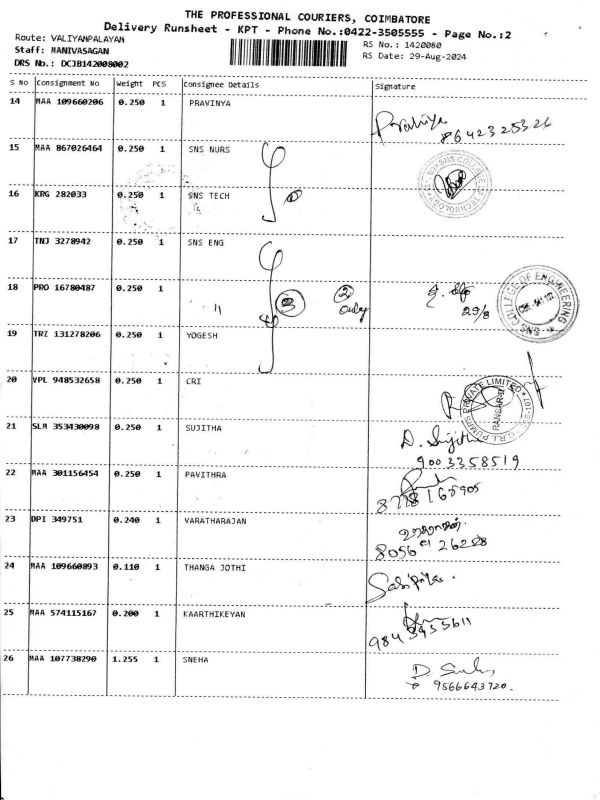 THE PROFESSIONAL COURIERS, COIMBATORE
Delivery Runsheet - KPT - Phone No.:0422-3505555 - Page No.:2
Route: VALIYAMPALAYAM
Staff: MANIVASAGAN
DRS No.: DCJB142008002
RS No.: 1420080
RS Date: 29-Aug-2024
S No Consignment No Weight PCS Consignee Details Signature
14 MAA 109660206 0.250 1 PRAVINYA
Pravinya
8642325326
15 MAA 867026464 0.250 1 SNS NURS
16 KRG 282033 0.250 1 SNS TECH
17 TNJ 3278942 0.250 1 SNS ENG
18 PRO 16780487 0.250 1 " 3 2 Only
29/8
SNS COLLEGE OF ENGINEERING
19 TRZ 131278206 0.250 1 YOGESH
20 VPL 948532658 0.250 1 CRI
C.R.I. PUMPS PRIVATE LIMITED
21 SLM 353430098 0.250 1 SUJITHA
D. Sujitha
9003358519
22 MAA 301156454 0.250 1 PAVITHRA
23 DPI 349751 0.240 1 VARATHARAJAN
24 MAA 109660893 0.110 1 THANGA JOTHI
Sasipriya.
25 MAA 574115167 0.200 1 KAARTHIKEYAN
9843955611
26 MAA 107738290 1.255 1 SNEHA
9566643720.